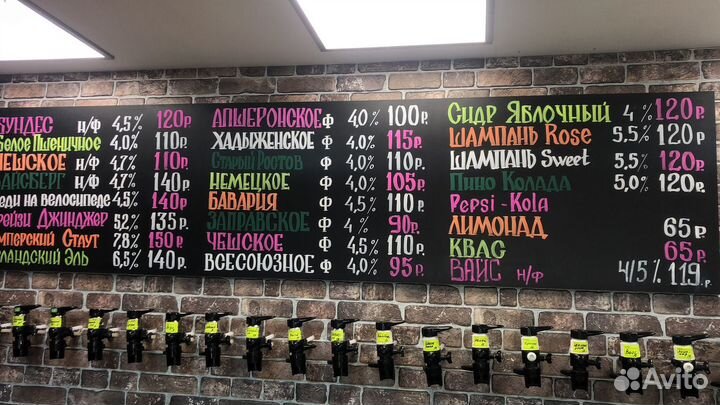 БУНДЕС н/ф 4,5% 120р.
Белое Пшеничное 4,0% 110р.
ЧЕШСКОЕ н/ф 4,7% 110р.
н/ф 4,7% 140р.
Леди на велосипеде 4,5% 140р
Крейзи Джинджер 5,2% 135р.
Имперский Стаут 7,8% 150р.
Ирландский Эль 6,5% 140р.
АПШЕРОНСКОЕ ф 4,0% 100р.
ХАДЫЖЕНСКОЕ ф 4% 115р.
Старый Ростов ф 4,0% 110р.
НЕМЕЦКОЕ ф 4,0% 105р.
БАВАРИЯ ф 4,5% 110р.
ЗАПРАВСКОЕ ф 4% 90р.
ЧЕШСКОЕ ф 4,5% 110р.
ВСЕСОЮЗНОЕ ф 4,0% 95р.
СИДР ЯБЛОЧНЫЙ 4% 120р.
ШАМПАНЬ Rose 5,5% 120р.
ШАМПАНЬ Sweet 5,5% 120р.
ПИНО КОЛАДА 5,0% 120р.
Pepsi - Kola
ЛИМОНАД 65р.
КВАС 65р.
ВАЙС н/ф 4,5% 119р.
Avito